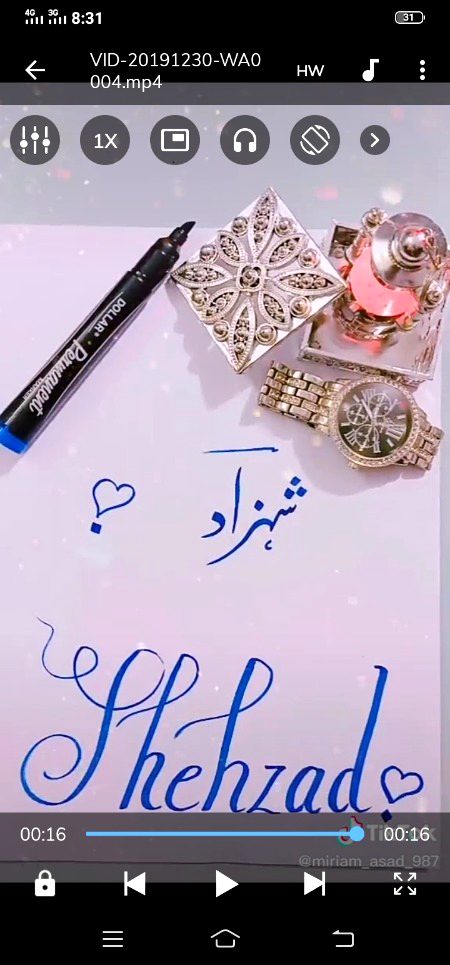 4G 3G 8:31 31
VID-20191230-WA0
004.mp4
HW
1X
DOLLAR
Permanent
MARKER
شہزاد
Shehzad
00:16 00:16
TikTok
@miriam_asad_987